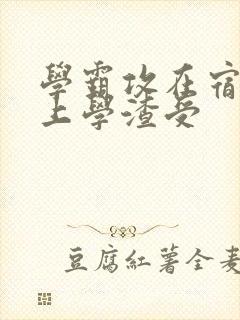 學霸攻在宿
上學渣受
豆腐紅薯全麦